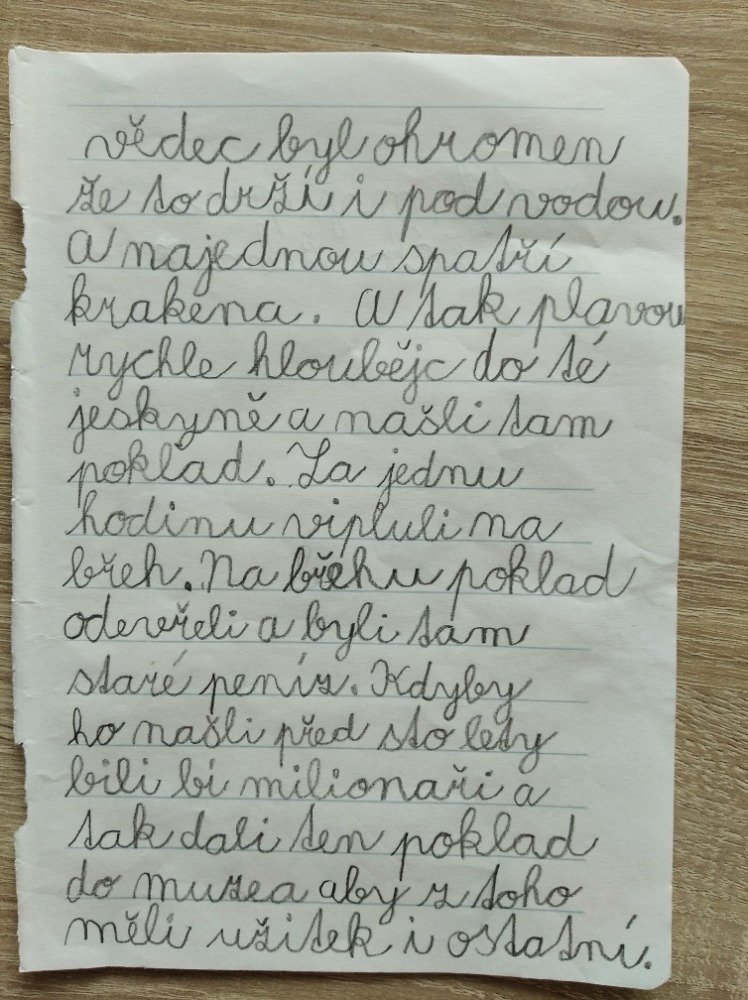 vědec byl ohromen
že to drží i pod vodou.
A najednou spatří
krakena. A tak plavou
rychle hloubějc do té
jeskyně a našli tam
poklad. Za jednu
hodinu vipluli na
břeh. Na břehu poklad
odevřeli a byli tam
staré peníz. Kdyby
ho našli před sto lety
bili bi milionaři a
tak dali ten poklad
do muzea aby z toho
měli užitek i ostatní.